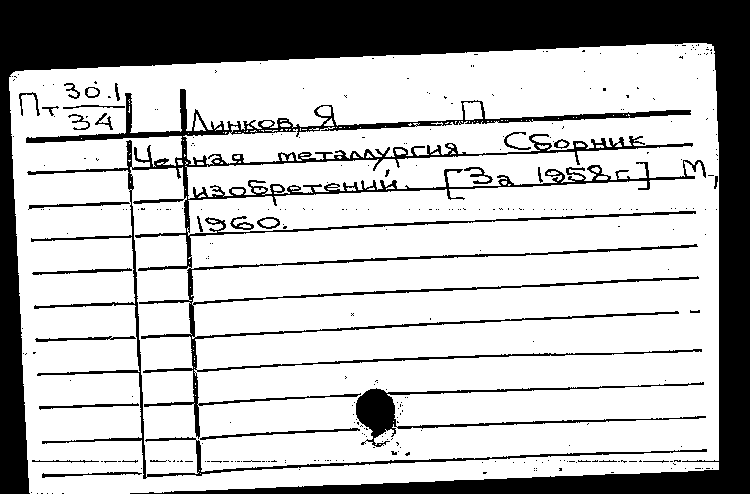 Пт 30.1/34 Линков, Я П
Черная металлургия. Сборник
изобретений. [За 1958 г.] М.,
1960.